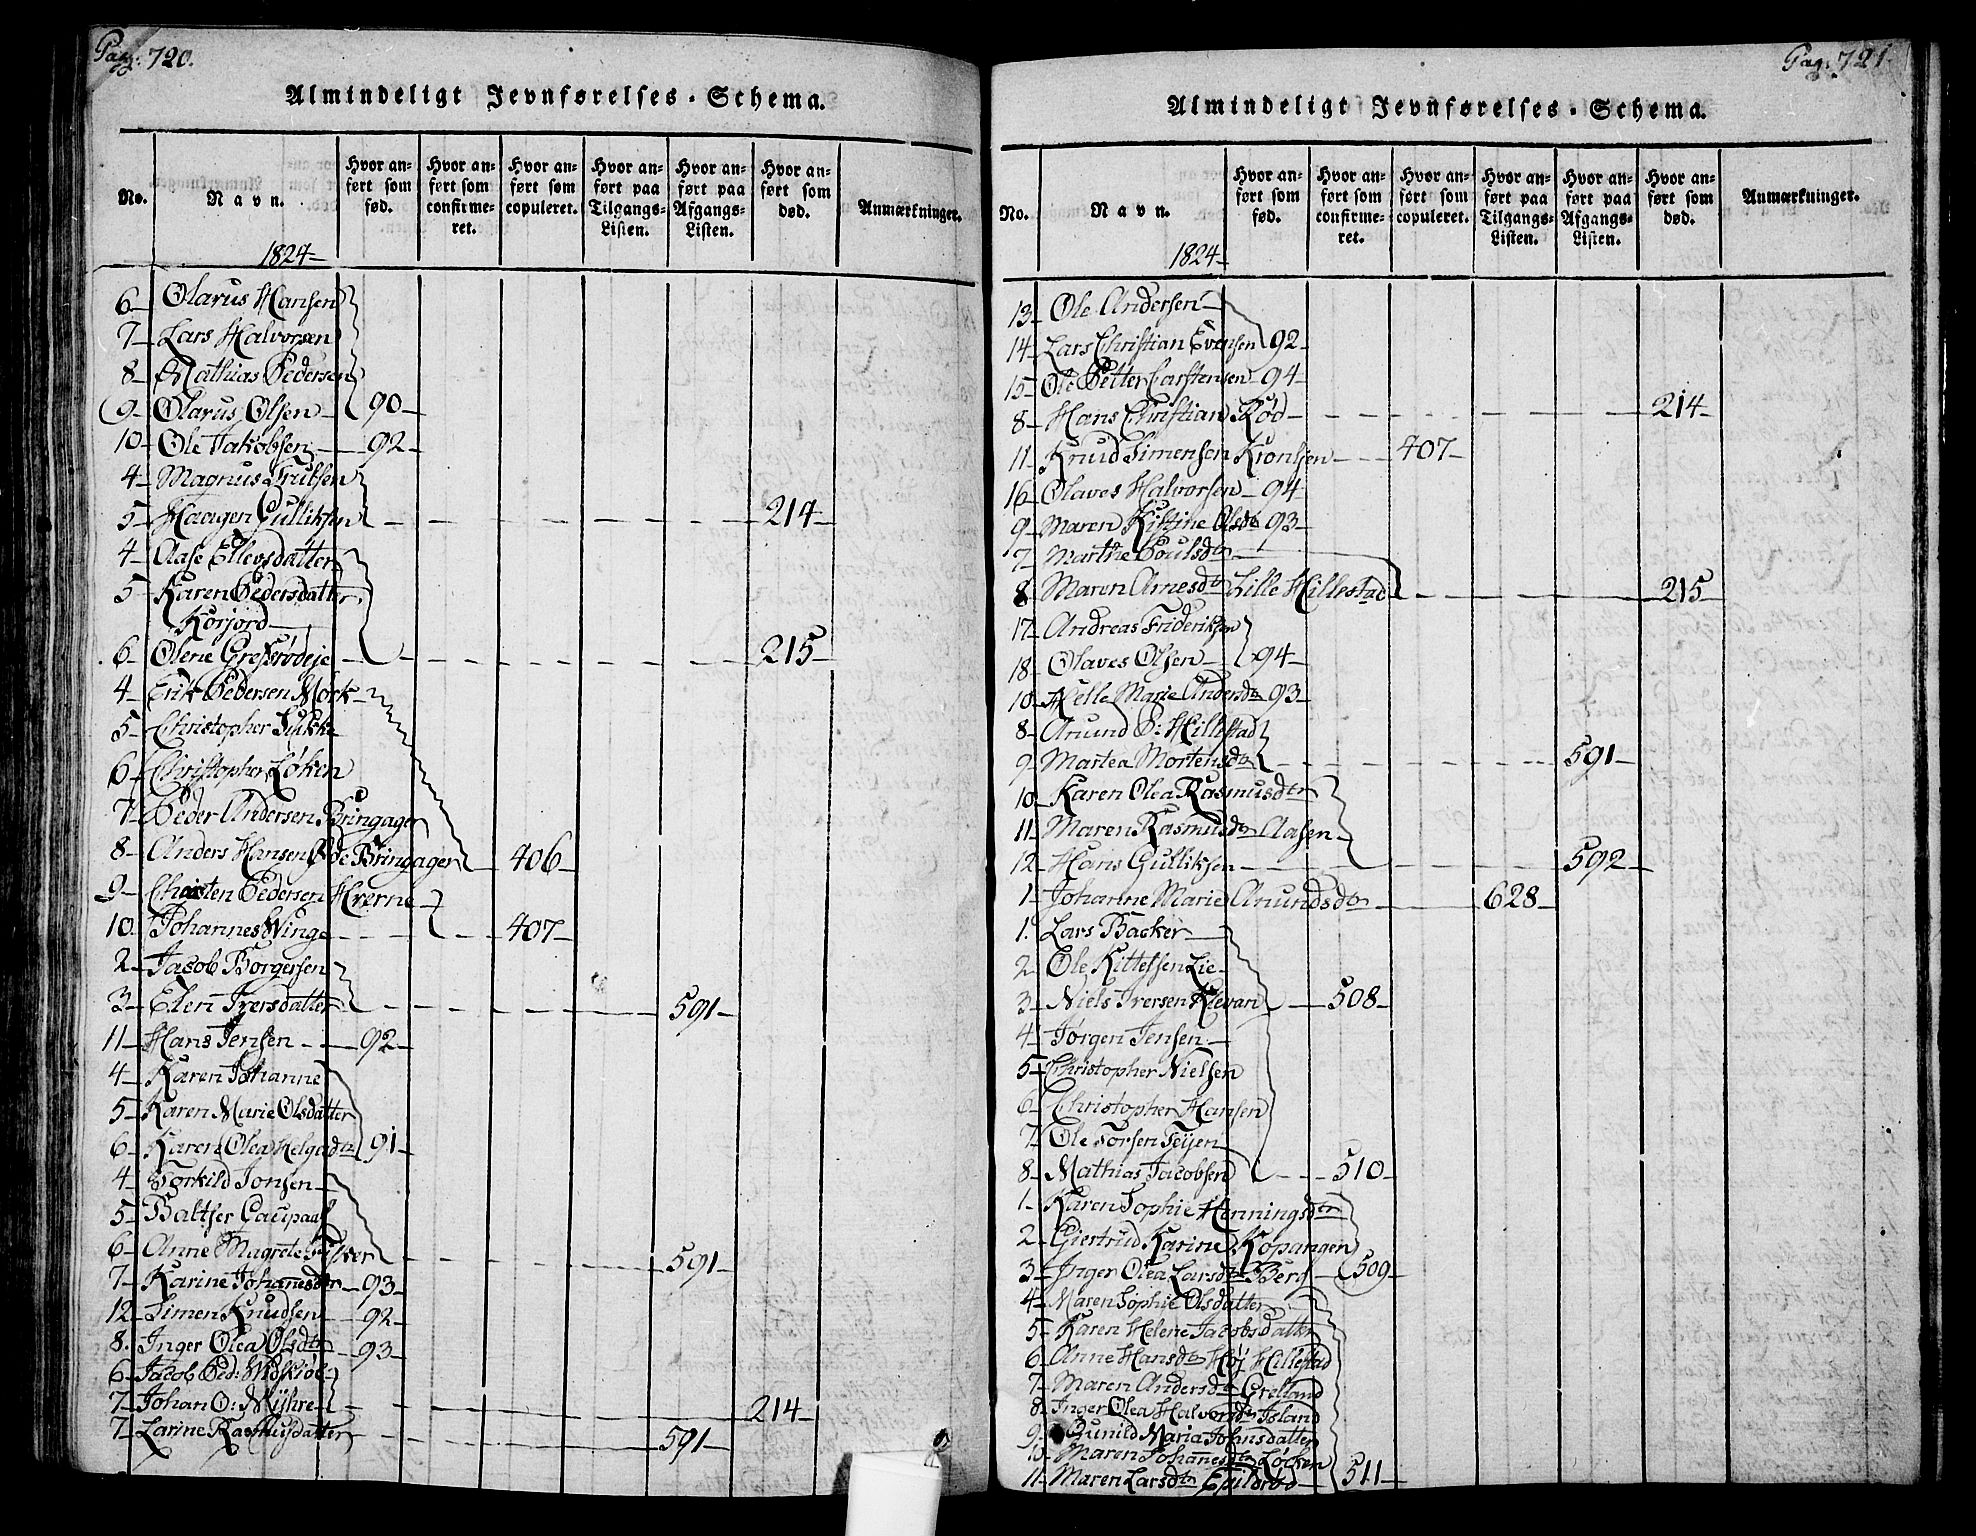 Pag: 720.
Almindeligt Jevnførelses-Schema.
No. Navn. Hvor anført som fød. Hvor anført som confirmeret. Hvor anført som copuleret. Hvor anført paa Tilgangs-Listen. Hvor anført paa Afgangs-Listen. Hvor anført som død. Anmærkninger.
1824
6 Olarus Hansen
7 Lars Halvorsen
8 Mathias Pedersen
9 Olarus Olsen 90
10 Ole Jakobsen 92
4 Magnus
5 Haagen Gulliksen 214
4 Aase Ellevsdatter
5 Karen Pedersdatter
Korjord
6 Olene Gresrødeje 215
4 Erik Pedersen Mørk
5 Christopher
6 Christopher Løken
7 Peder Andersen Bringager
8 Anders Hansen Øde Bringager 406
9 Christen Pedersen
10 Johannes Vinge 407
2 Jacob Borgersen
3 Elen Iversdatter 591
11 Hans Jensen 92
4 Karen Johanne
5 Karen Marie Olsdatter
6 Karen Olea Helgadtr 91
4 Torkild Jonsen
5 Baltser Gaupaas
6 Anne Magrete 591
7 Karine Johanesdtr 93
12 Simen Knudsen 92
8. Inger Olea Olsdtr 93
6 Jacob Ped:
7 Johan O: Myhre 214
7 Larine Rasmusdatter 591
Pag: 721.
Almindeligt Jevnførelses-Schema.
No. Navn. Hvor anført som fød. Hvor anført som confirmeret. Hvor anført som copuleret. Hvor anført paa Tilgangs-Listen. Hvor anført paa Afgangs-Listen. Hvor anført som død. Anmærkninger.
1824
13 Ole Andersen
14 Lars Christian Evensen 92
15 Ole Petter Carstensen 94
8 Hans Christian Rød 214
11 Knud Simensen 407
16 Olaves Halvorsen 94
9 Maren Kistine Olsdtr 93
7 Marthe Poulsdtr
8 Maren Arnesdtr Lille Hillestad 215
17 Andreas Frideriksen
18 Olaves Olsen 94
10 Helle Marie Andersdtr 93
8 Amund P: Hillestad
9 Martea Mortensdtr 591
10 Karen Olea Rasmusdtr
11 Maren Rasmusdtr Aasen
12 Hans Gulliksen 592
1 Johanne Marie Amundsdtr 628
1. Lars Backer
2 Ole Kittelsen Lie
3 Niels Iversen Klevan 508
4 Jørgen Jensen
5 Christopher Nielsen
6 Christopher Hansen
7 Ole Torsen Feyen
8 Mathias Jacobsen 510
1 Karen Sophie Henningsdtr
2 Giertrud Karine Kopangen
3 Inger Olea Larsdtr Berg 509
4 Maren Sophie Olsdatter
5 Karen Helene Jacobsdatter
6 Anne Hansdtr Høj Hillestad
7 Maren Andersdtr Grelland
8 Inger Olea Halvorsdtr Island
9 Gunild Maria Johnsdatter
10 Maren Johanesdtr Løcken
11 Maren Larsdtr 511